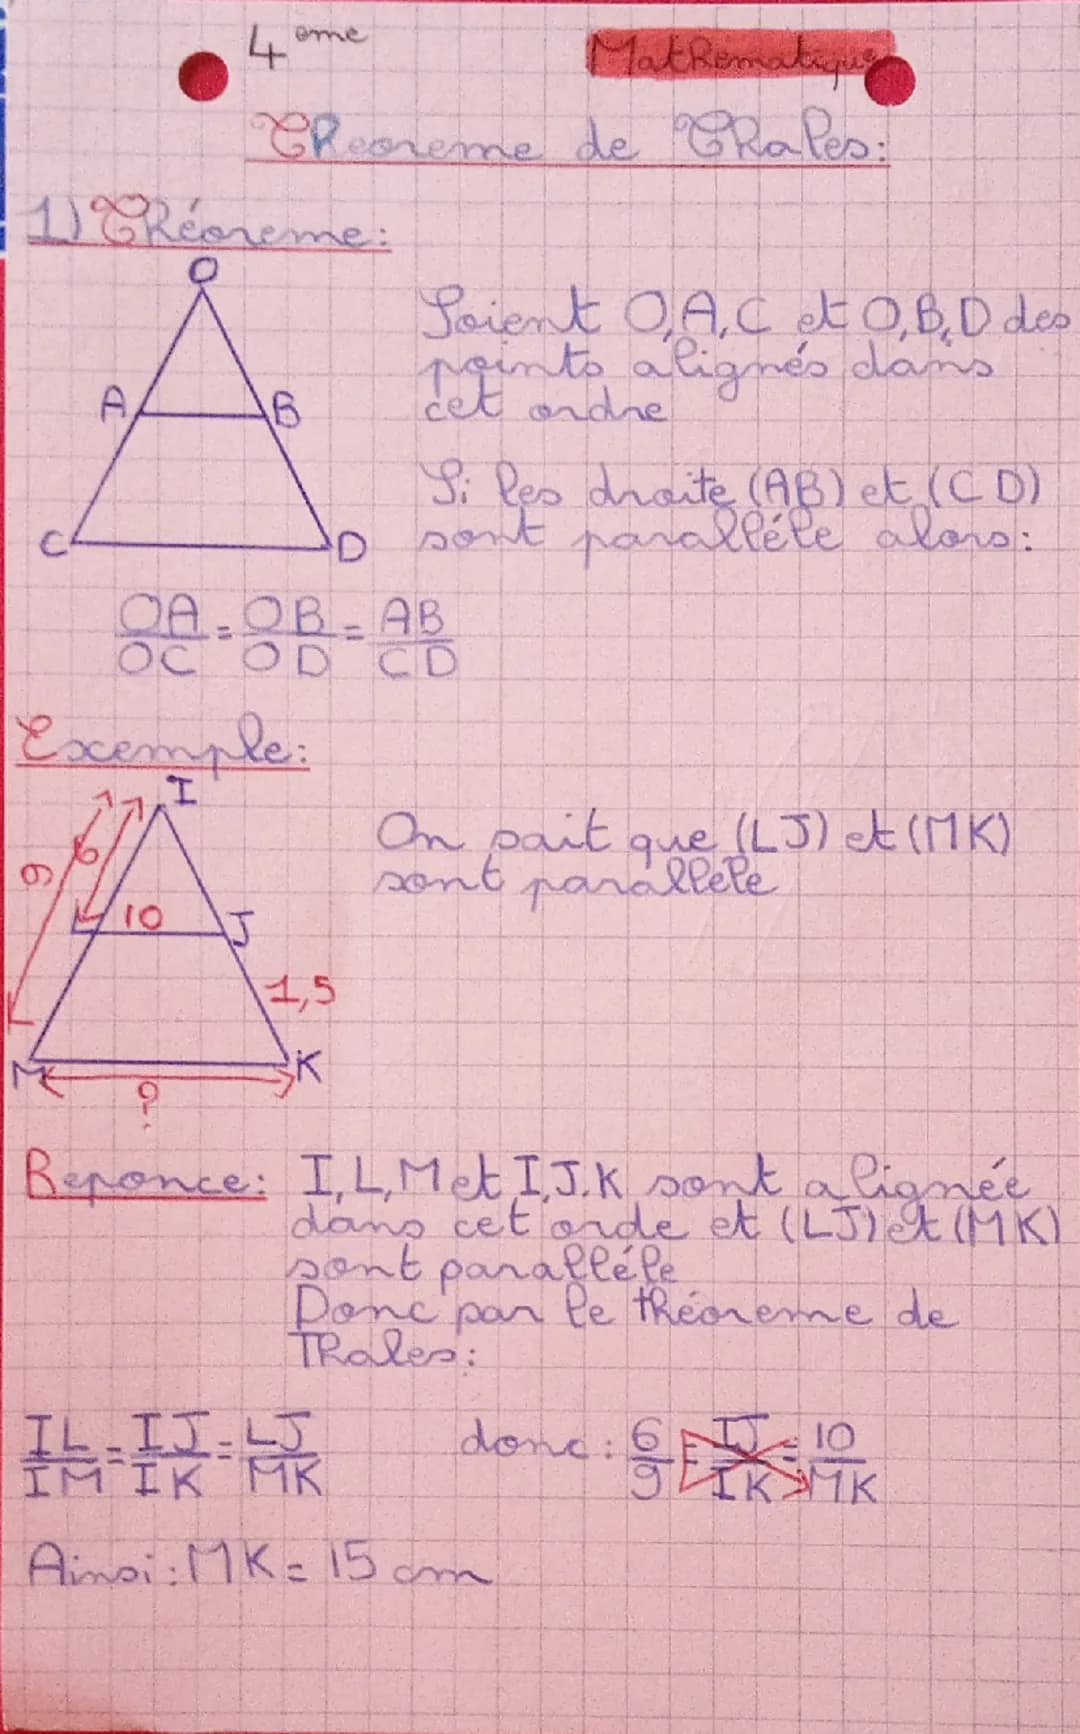 4 eme
Mathematique
Theoreme de Thales:
1) Théoreme:
O
A
B
C
D
Soient O,A,C et O,B,D des
points alignés dans
cet ordre
Si les droite (AB) et (CD)
sont parallèle alors:
OA = OB = AB
OC OD CD
Exemple:
I
9
6
10
J
1,5
M
K
?
On sait que (LJ) et (MK)
sont parallele
Reponce: I,L,M et I,J,K sont alignée
dans cet orde et (LJ) et (MK)
sont paralléle
Donc par le théoreme de
Thales:
IL = IJ = LJ
IM IK MK
donc: 6 = IJ = 10
9 IK MK
Ainsi: MK = 15 cm